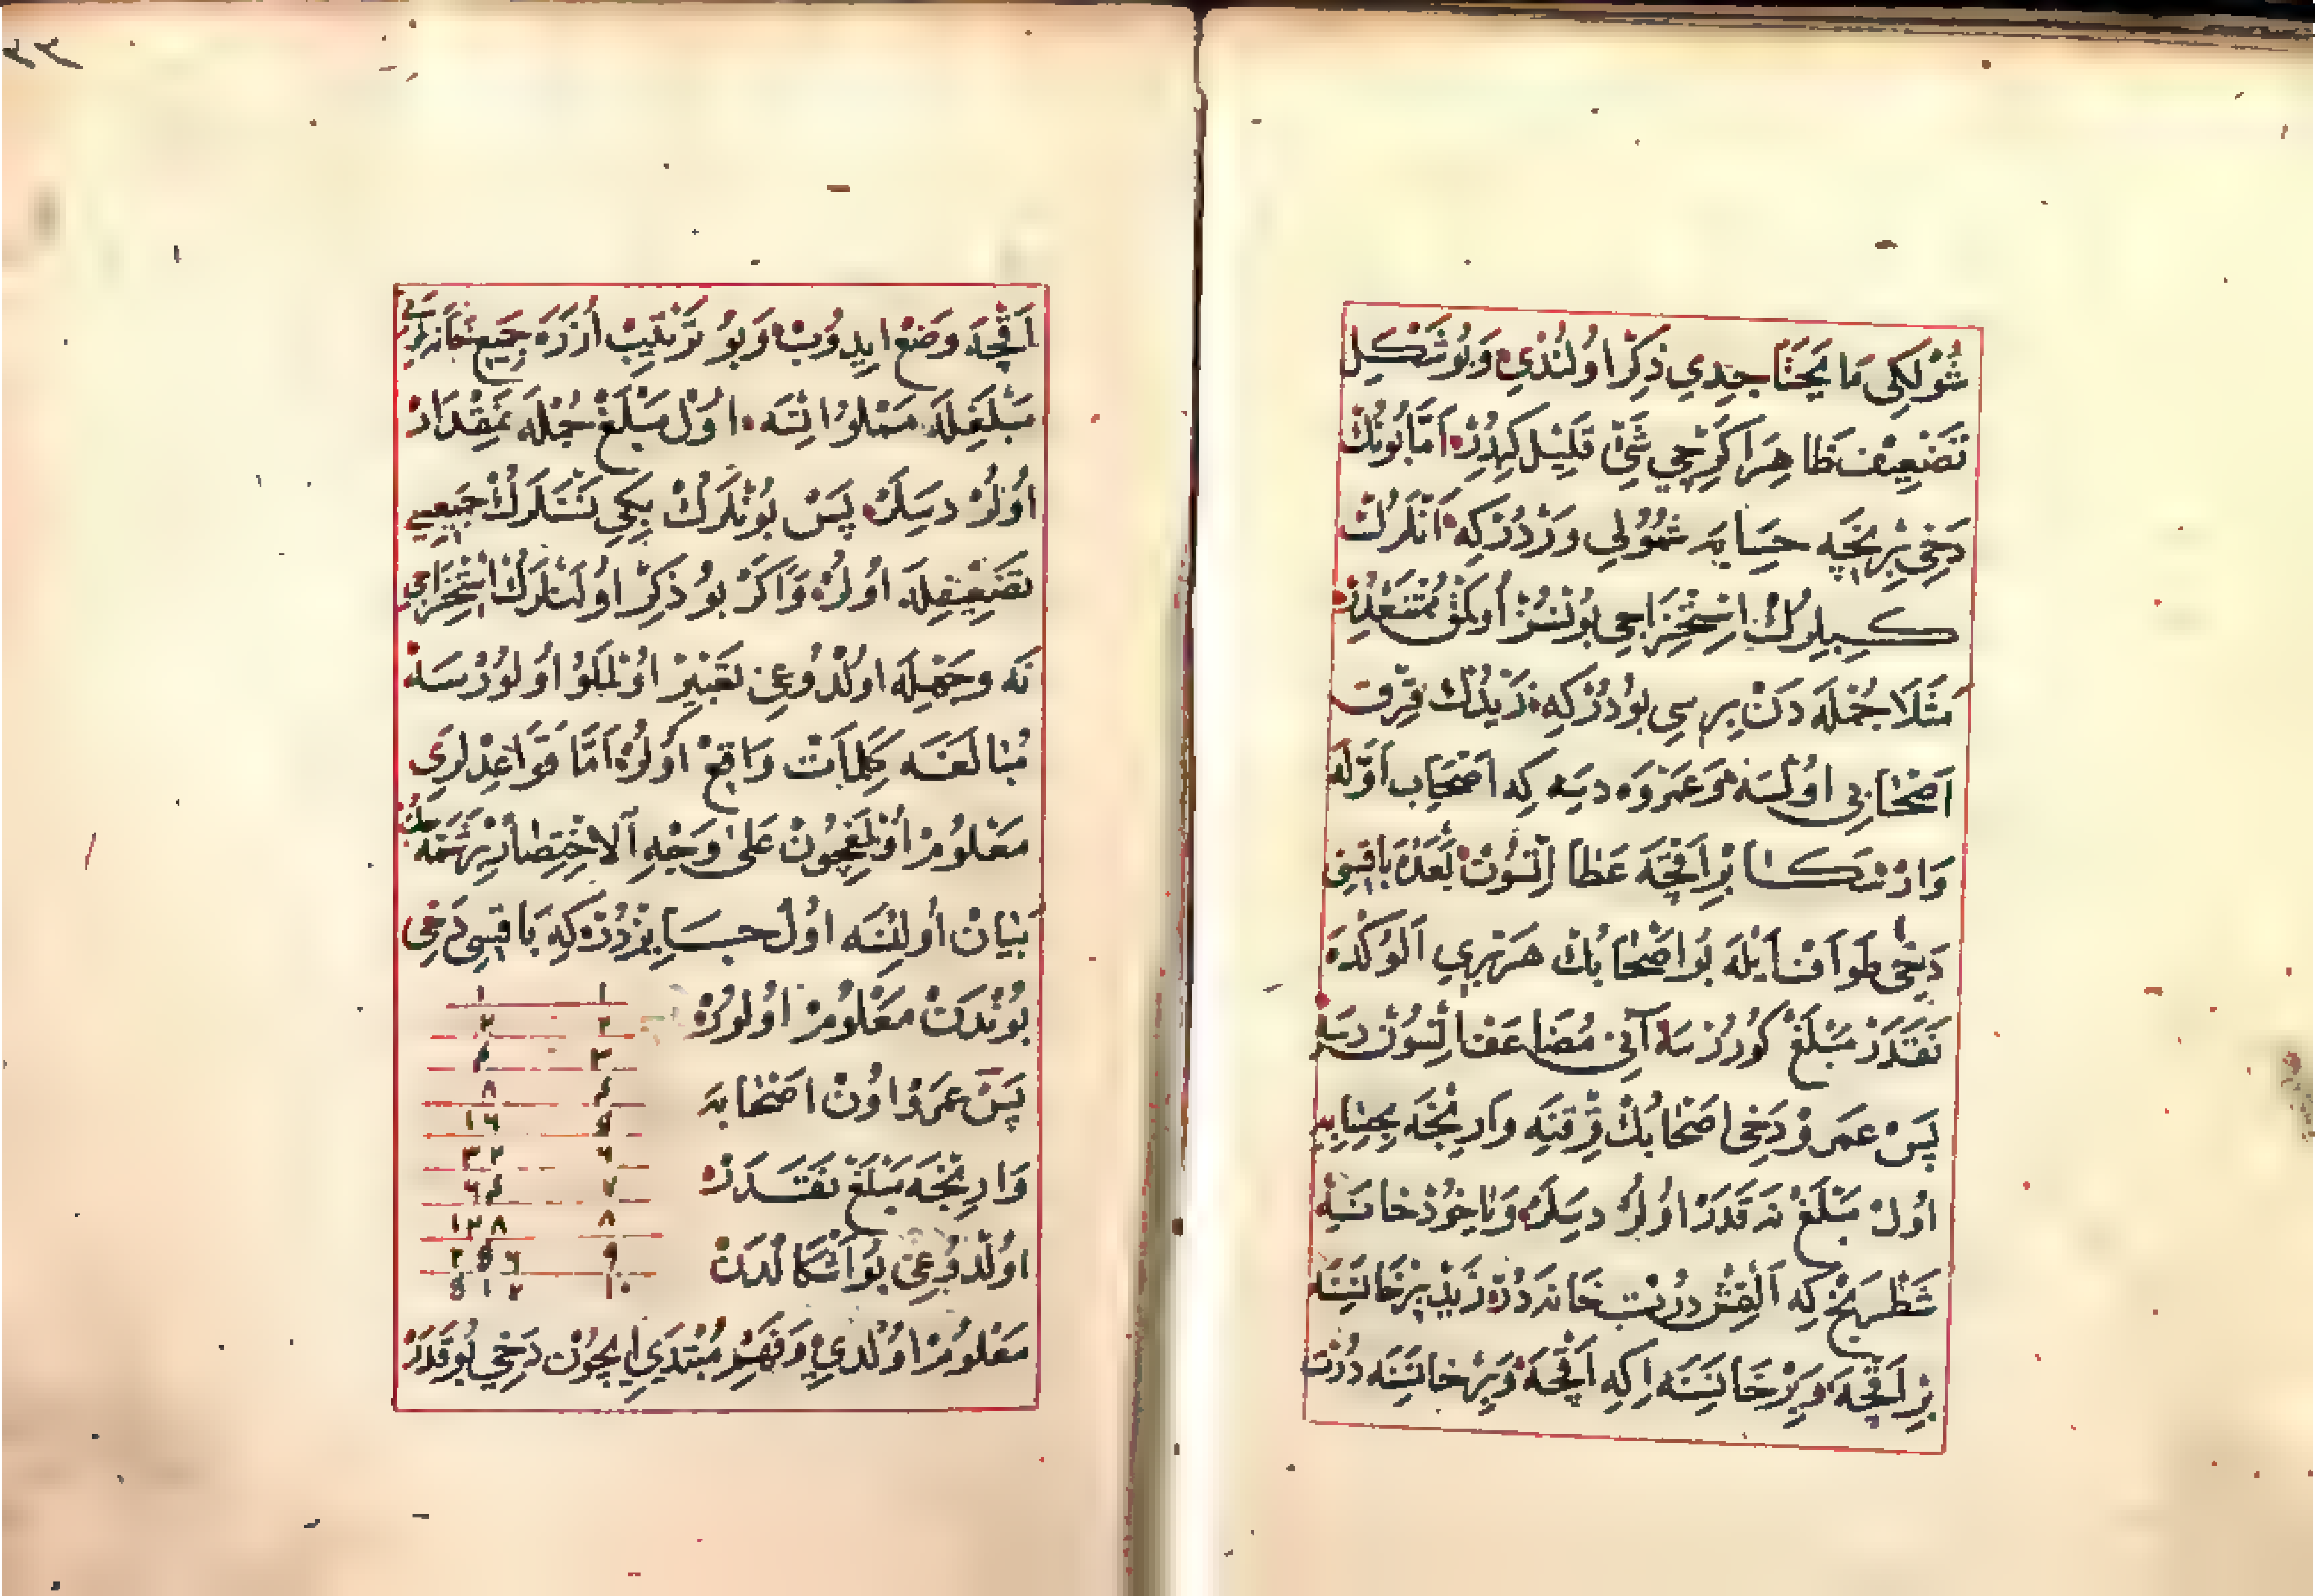 شُولْكِي مَا يَحْتَاجِدِي ذِكْرْ اُولُنْدِي وَبُو شَكِلْ
تَضْعِيفْ ظَاهِرَا كَرْچِي شَيْءٌ قَلِيلْ كِبِدِرْ اَمَّا بُونُكْ
دَخِي بِرْ نِچَه حِسَابَه شُمُولِي وَرْدُرْ كِه اَنْلَرُكْ
كِبِيلَرُكْ اِسْتِخْرَاجِي بُونْسُزْ اُولْمَقْ مُمْتَنَعْدِرْ
مَثَلَا جُمْلَه دَنْ بِرِسِي بُودُرْ كِه زَيْدُكْ قِرْقْ
اَصْحَابِي اُولْسَه وَعَمْرْوَه دِيسَه كِه اَصْحَابِ اَوَّلَه
وَارْسَكَا بِرْ اَقْچَه عَطَا اِتْسُونْ بَعْدَهُ بَاقِيسِنِ
دَخِي طَوَافْ اَيْلَه بُو اَصْحَابُكْ هَرْ بِرِي اَلُوكْدَه
نَقَدَرْ مَبْلَغْ كُورُرْسَه آنِي مُضَاعَفْ اِتْسُونْ دِيسَه
پَسْ عَمْرْو دَخِي اَصْحَابُكْ قِرْقِنَه وَارِنْجَه بِحِسَابِهِ
اُولْ مَبْلَغْ نَه قَدَرْ اُولُرْ دِيسَلَرْ وَيَاخُودْ خَانَه
شَطْرَنْجْ كِه اَلْتْمِشْ دُرْتْ خَانَه دُرْ زَيْدْ بِرْ خَانَسِنَه
بِرْ اَقْچَه وَبِرْ خَانَسِنَه اِكِه اَقْچَه وَبِرْ خَانَسِنَه دُرْتْ
اَقْچَه وَضْعْ اِيدُوبْ وَبُو تَرْتِيبْ اُزَرَه جَمِيعْ خَانَه لَرِنِي
مَبْلَغِلَه مَمْلُوْ اِتْسَه اُولْ مَبْلَغْ جُمْلَه نَمِقْدَارْ
اُولُرْ دِيسَلَرْ پَسْ بُونْلَرُكْ بِكِي نَسْنَلَرُكْ جَمِيعِي
تَضْعِيفِلَه اُولُرْ وَاَكَرْ بُو ذِكْرْ اُولَنْلَرُكْ اِسْتِخْرَاجِي
نَه وَجْهِلَه اُولْدُوغِنْ تَعْبِيرْ اُولُنْمَلُو اُولُورْسَه
مُبَالَغَه كَلِمَاتْ وَاقِعْ اُولُرْ اَمَّا قَوَاعِدْلَرِي
مَعْلُومْ اُولْمَغِچُونْ عَلَى وَجْهِ اَلاخْتِصَارْ بِرْ شَمَّه سِنْ
بَيَانْ اُولِنْسَه اُولْ حِسَابْدُرْ كِه بَاقِيسِي دَخِي
بُونْدَنْ مَعْلُومْ اُولُورْ
پَسْ عَمْرْوُاوُنْ اَصْحَابَه
وَارِنْجَه مَبْلَغْ نَقَدَرْ
اُولْدُوغِي بُو اَشْكَالْدَنْ
مَعْلُومْ اُولْدِي وَفَهْمِ مُبْتَدِي اِيچُونْ دَخِي بُو قَدَرْ
١ ١
٢ ٢
٣ ۴
۴ ٨
۵ ١٦
٦ ٣٢
٧ ٦۴
٨ ١٢٨
٩ ٢۵٦
١٠ ۵١٢